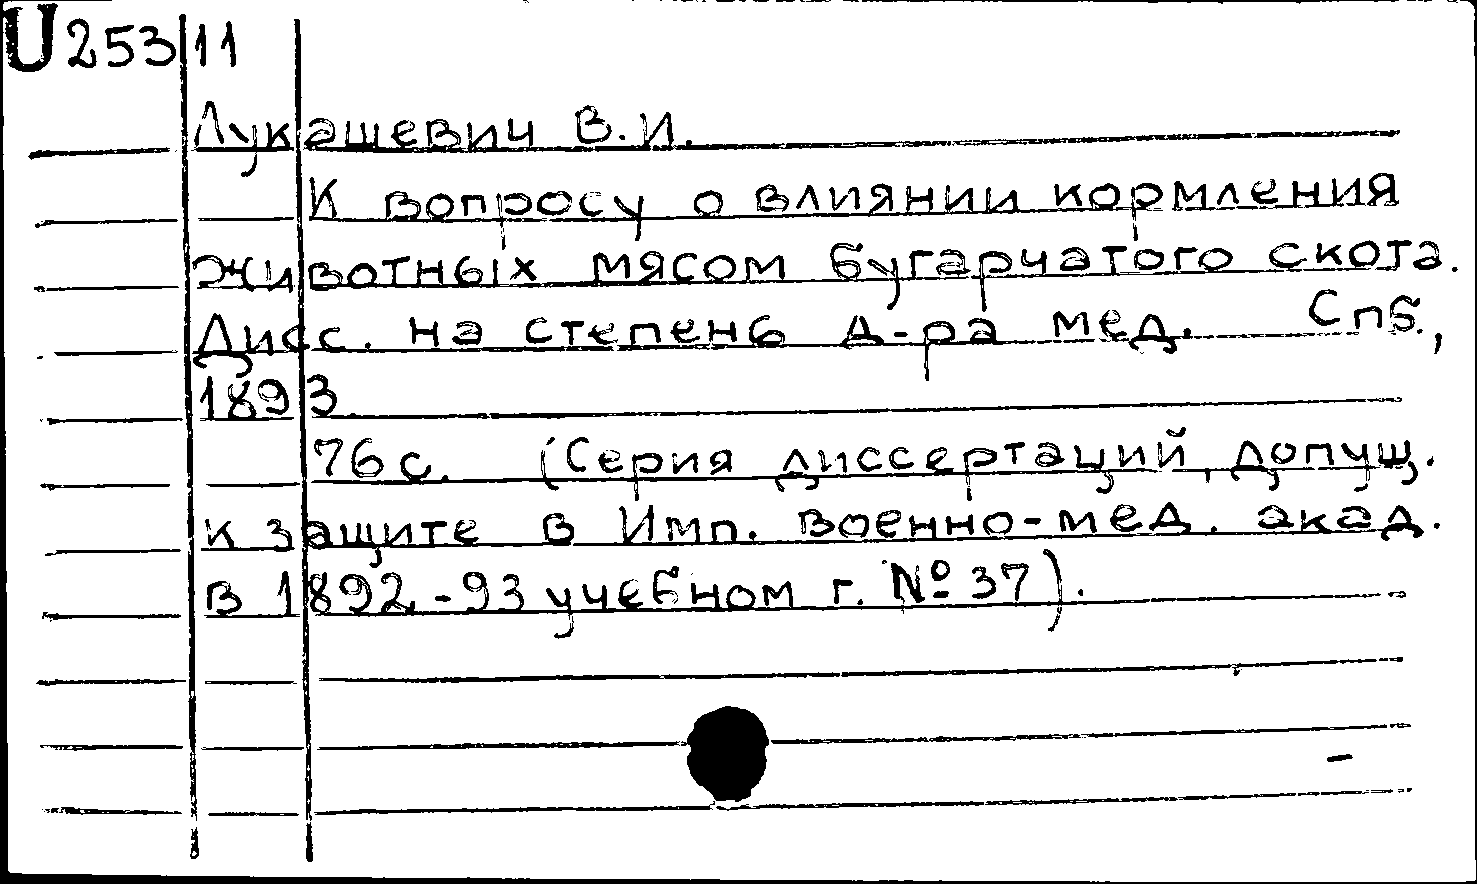 U 253 11
Лукашевич В.И.
К вопросу о влиянии кормления
животных мясом бугарчатого скота.
Дисс. на степень д-ра мед. Спб.,
1893.
76 с. (Серия диссертаций, допущ.
к защите в Имп. военно-мед. акад.
в 1892-93 учебном г. № 37).